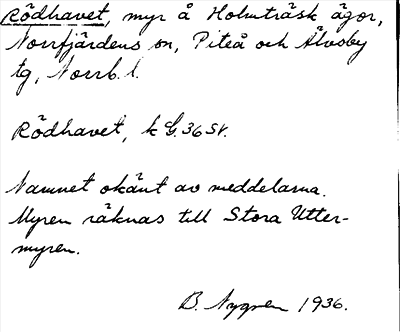 Rödhavet, myr å Holmträsk ägor,
Norrfjärdens sn, Piteå och Älvsby
tg, Norrb. l.
Rödhavet, k G. 36 SV.
Namnet okänt av meddelarna.
Myren räknas till Stora Utter-
myren.
B. Nygren 1936.